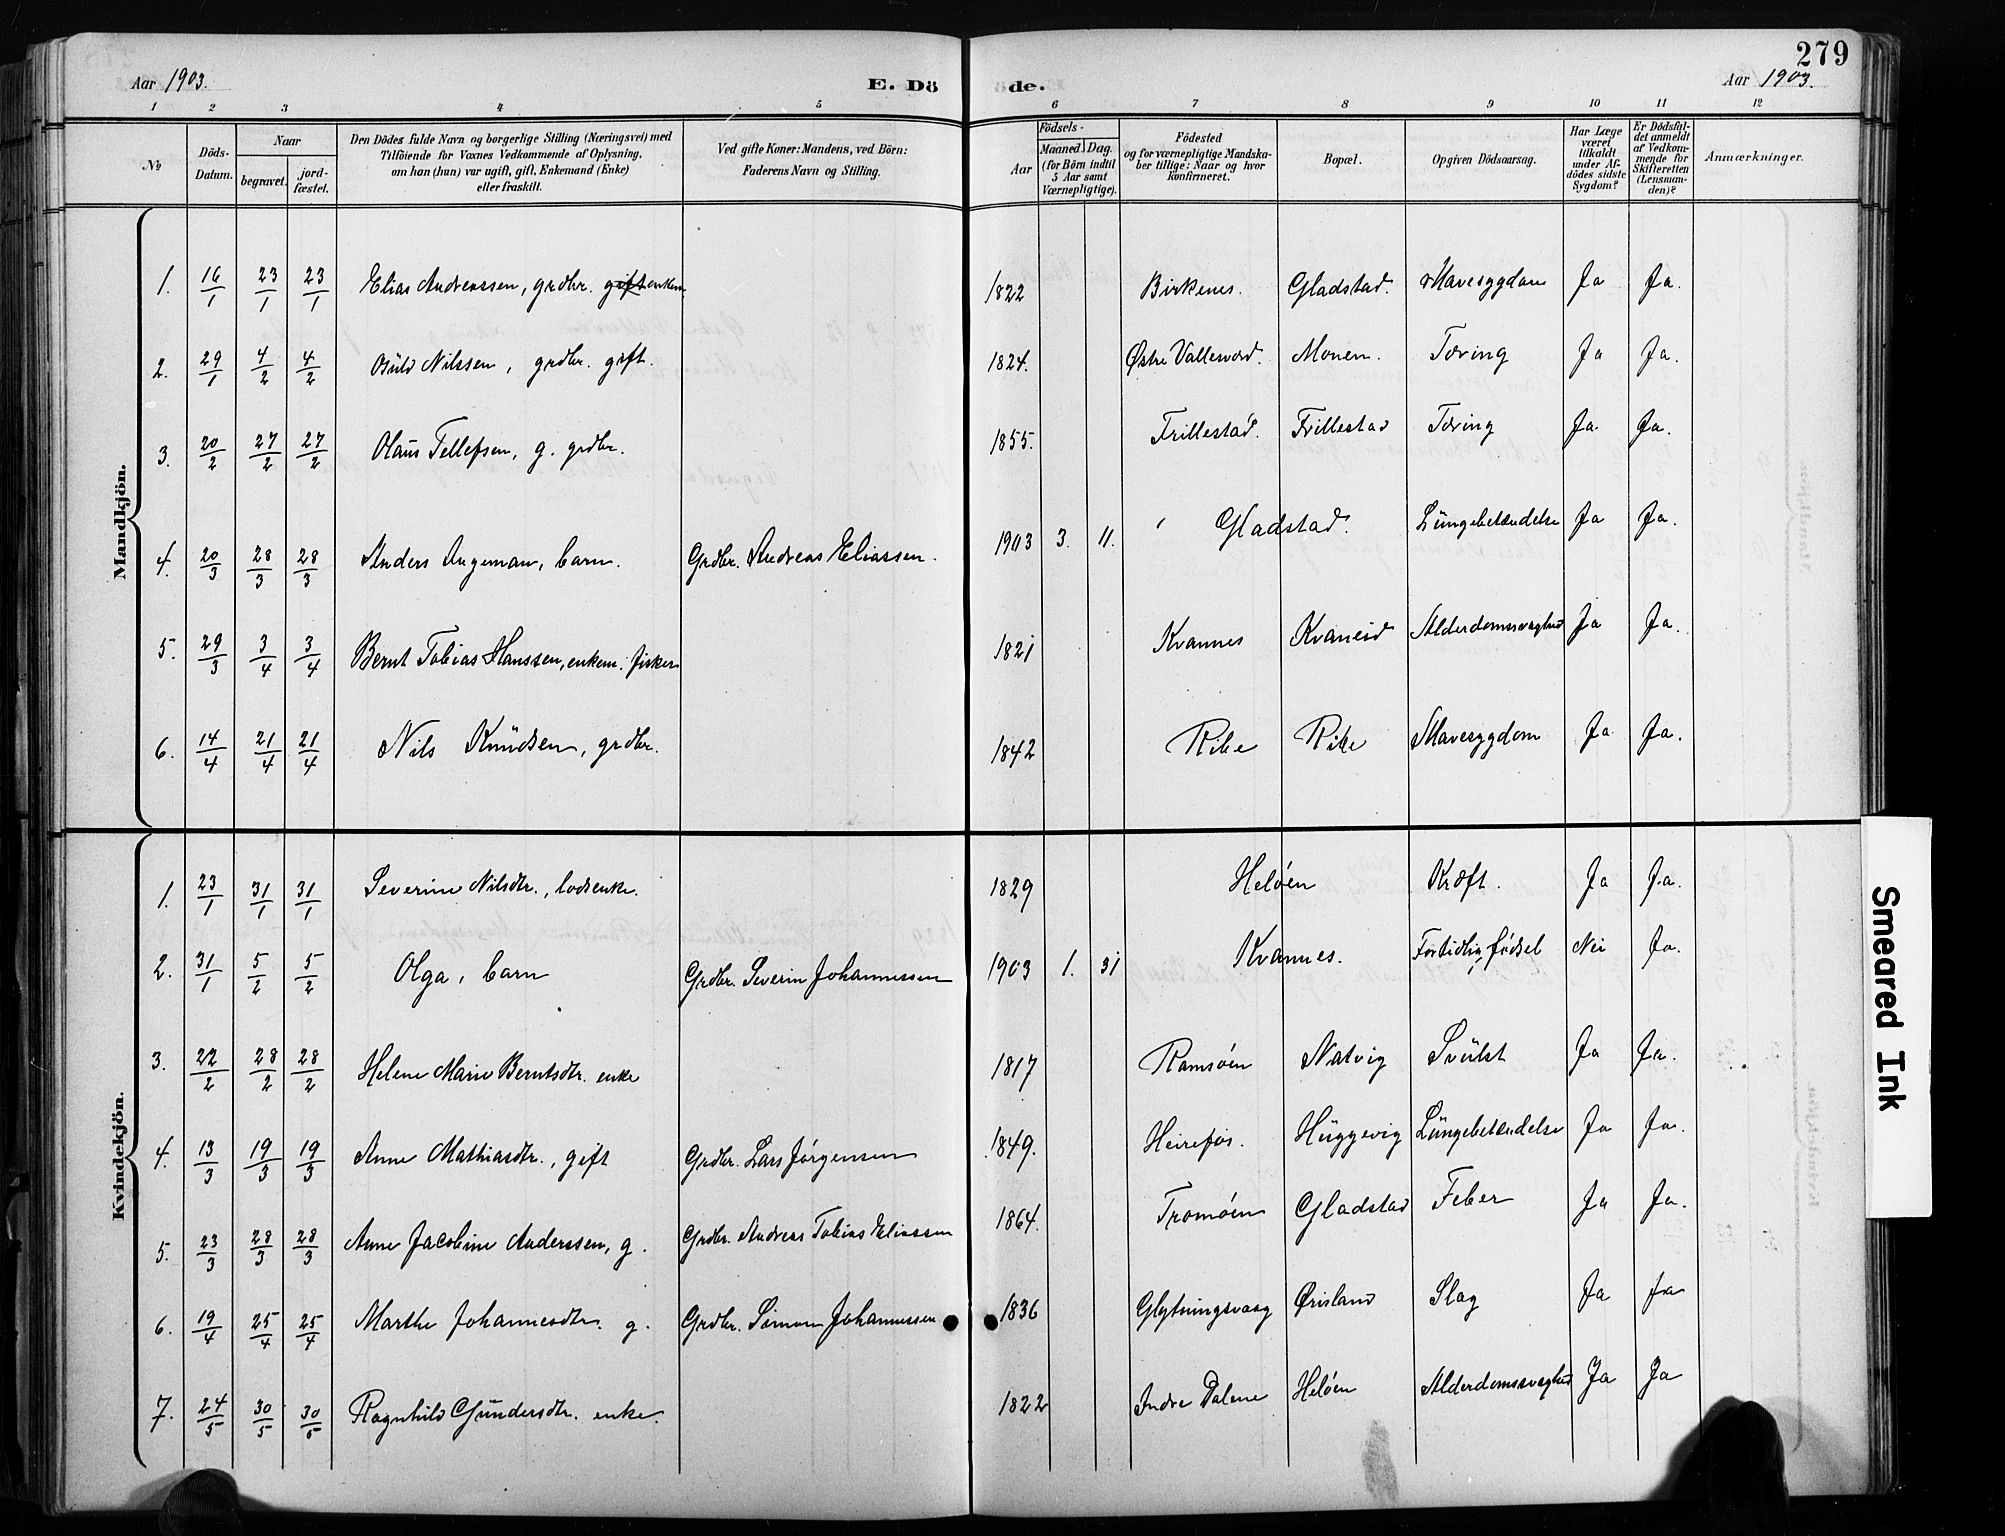 279
Aar 1903. E. Dö de. Aar 1903.
1 2 3 4 5 6 7 8 9 10 11 12
№ Döds-Datum. Naar begravet. jord-fæstet. Den Dödes fulde Navn og borgerlige Stilling (Næringsvei) med Tilföiende for Voxnes Vedkommende af Oplysning, om han (hun) var ugift, gift, Enkemand (Enke) eller fraskilt. Ved gifte Koner: Mandens, ved Börn: Faderens Navn og Stilling. Födsels- Aar Maaned Dag. (for Börn indtil 5 Aar samt Værnepligtige). Födested og for værnepligtige Mandskaber tillige: Naar og hvor konfirmeret. Bopæl. Opgiven Dödsaarsag. Har Læge været tilkaldt under Afdödes sidste Sygdom? Er Dödsfaldet anmeldt af Vedkommende for Skifteretten (Lensmanden)? Anmærkninger.
Mandkjön.
1. 16/1 23/1 23/1 Elias Andreassen, grdbr. gift enkem. 1822 Birkenes. Gladstad. Mavesygdom Ja Ja.
2. 29/1 4/2 4/2 Nilssen, grdbr. gift. 1824. Østre Vallesværd. Monen. Tæring Ja Ja.
3. 20/2 27/2 27/2 Olaus Tellefsen, g. grdbr. 1855. Frillestad. Frillestad Tæring Ja Ja.
4. 20/3 28/3 28/3 Anders Angeman, barn. Grdbr. Andreas Eliassen. 1903 3. 11. Gladstad. Lungebetændelse Ja Ja.
5. 29/3 3/4 3/4 Bernt Tobias Hanssen, enkem. fisker 1821 Kvannes Kvaneid Alderdomssvaghed Ja Ja.
6. 14/4 21/4 21/4 Nils Knudsen, grdbr. 1842 Rike Rike Mavesygdom Ja Ja.
Kvindekjön.
1. 23/1 31/1 31/1 Severine Nilsdtr., lodsenke. 1829 Heløen Kræft. Ja Ja.
2. 31/1 5/2 5/2 Olga, barn Grdbr. Severin Johannessen 1903 1. 31 Kvannes. Fortidlig fødsel Nei Ja.
3. 22/2 28/2 28/2 Helene Marie Berntsdtr. enke 1817 Ramsøen Natvig Svulst Ja Ja.
4. 13/3 19/3 19/3 Anne Mathiasdtr., gift Grdbr. Lars Jørgensen 1849. Heirefos. Huggevig Lungebetændelse Ja Ja.
5. 23/3 28/3 28/3 Anne Jacobine Anderssen, g. Grdbr. Andreas Tobias Eliassen 1864. Tromøen Gladstad Feber Ja Ja.
6. 19/4 25/4 25/4 Marthe Johannesdtr. g. Grdbr. Simon Johannessen 1836 Glytningsvaag Ørisland Slag Ja Ja
7. 24/5 30/5 30/5 Ragnhild Gundersdtr. enke. 1822 Indre Dalene Heløen Alderdomssvaghed Ja Ja
Smeared Ink